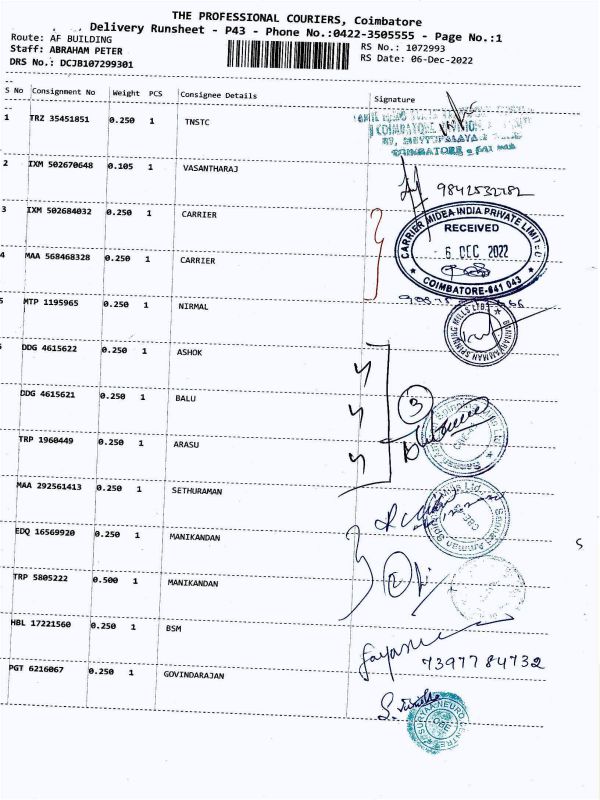 THE PROFESSIONAL COURIERS, Coimbatore
Delivery Runsheet - P43 - Phone No.:0422-3505555 - Page No.:1
Route: AF BUILDING
RS No.: 1072993
Staff: ABRAHAM PETER
RS Date: 06-Dec-2022
DRS No.: DCJB107299301
S No Consignment No Weight PCS Consignee Details Signature
1 TRZ 35451851 0.250 1 TNSTC
COIMBATORE
2 IXM 502670648 0.105 1 VASANTHARAJ
9842532782
3 IXM 502684032 0.250 1 CARRIER
CARRIER MIDEA INDIA PRIVATE LIMITED
RECEIVED
6 DEC 2022
COIMBATORE-641 043
4 MAA 568468328 0.250 1 CARRIER
5 MTP 1195965 0.250 1 NIRMAL
BANNARIAMMAN SPINNING MILLS LTD.
DDG 4615622 0.250 1 ASHOK
DDG 4615621 0.250 1 BALU
3
TRP 1960449 0.250 1 ARASU
MAA 292561413 0.250 1 SETHURAMAN
EDQ 16569920 0.250 1 MANIKANDAN
TRP 5805222 0.500 1 MANIKANDAN
2
HBL 17221560 0.250 1 BSM
7397784732
PGT 6216067 0.250 1 GOVINDARAJAN
CBE